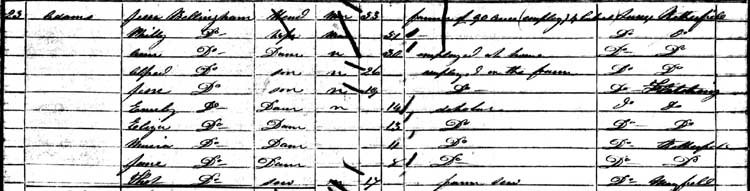 23 Adams Jesse Bellingham Head Mar 53 farmer of 90 acres (employ 4 labrs) Sussex Rotherfield
D° wife Mar 51 D° D°
Anne D° Daur u 30 employed at home D° D°
Alfred D° son u 26 employed on the farm D° D°
Jesse D° son u 19 D° D° Fletching
Emily D° Daur u 14 scholar D° D°
Eliza D° Daur 13 D° D°
Maria D° Daur 11 D° D° Rotherfield
Jane D° Daur 8 D° D° D°
D° son 17 farm D° Mayfield